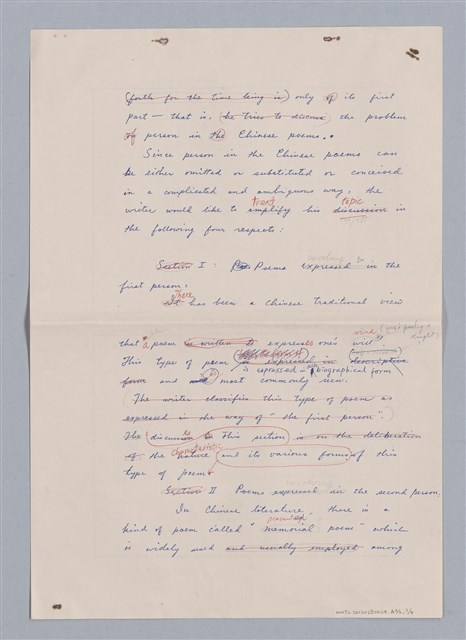 (forth for the time being is) only of its first
part — that is, (he tries to discuss the problem
of person in the Chinese poems.
Since person in the Chinese poems can
be either omitted or substituted or conceived
in a complicated and ambiguous way, the
treat topic
writer would like to simplify his discussion in
the following four respects:
Section I : Poems expressed in the
first person:
There
It has been a Chinese traditional view
mind
that a poem is written to expresses one's will."
This type of poem is expressed in descriptive
is expressed in biographical form
form and most commonly seen.
(The writer classifies this type of poem as
expressed in the way of "the first person".
The discussion in This section is on the deliberation
characteristic
of the nature and its various forms of this
type of poem
Section II Poems expressed in the second person.
In Chinese literature, there is a
kind of poem called "memorial poem" which
is widely used and usually employed among